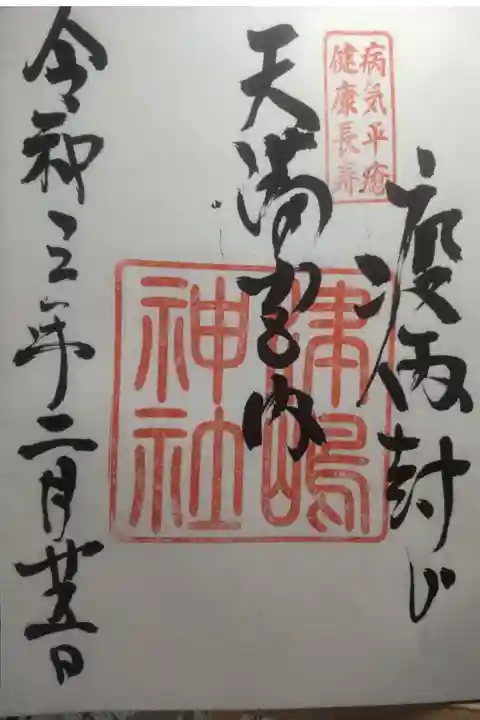 病気平癒
健康長寿
疫病封じ
天満宮内
津嶋
神社
令和三年二月廿五日